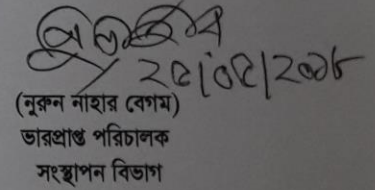 ২৫/০৫/২০০৮
(নুরুন নাহার বেগম)
ভারপ্রাপ্ত পরিচালক
সংস্থাপন বিভাগ